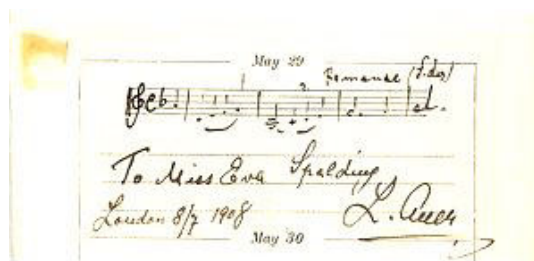 May 29
Romance (F. dur)
To Miss Eva Spalding
London 8/7 1908
L. Auer
May 30